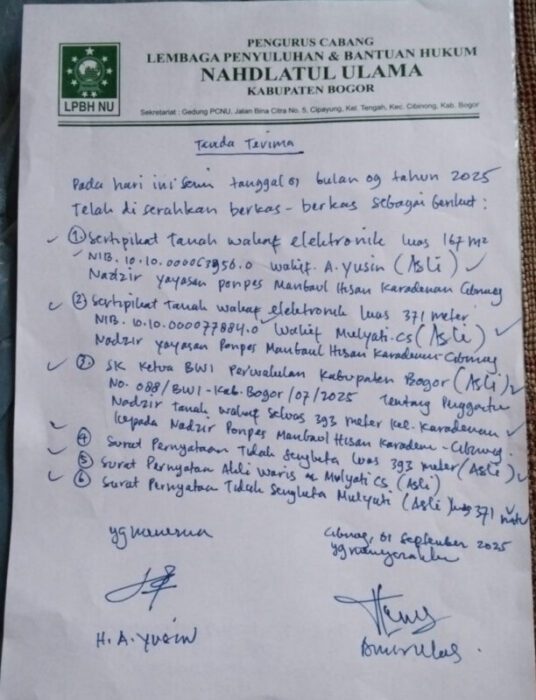 LPBH NU
PENGURUS CABANG
LEMBAGA PENYULUHAN & BANTUAN HUKUM
NAHDLATUL ULAMA
KABUPATEN BOGOR
Sekretariat : Gedung PCNU, Jalan Bina Citra No. 5, Cipayung, Kel. Tengah, Kec. Cibinong, Kab. Bogor
Tanda Terima
Pada hari ini Senin tanggal 01 bulan 09 tahun 2025
Telah di serahkan berkas-berkas sebagai berikut :
① Sertipikat Tanah wakaf elektronik luas 167 m2
NIB. 10.10.000063956.0 wakif. A. Yusin (Asli)
Nadzir yayasan ponpes Manbaul Ihsan Karadenan Cibinong
② Sertipikat Tanah wakaf elektronik luas 371 meter
NIB. 10.10.000077884.0 wakif Mulyati.cs (Asli)
Nadzir yayasan Ponpes Manbaul Ihsan Karadenan-Cibinong
③ SK Ketua BWI Perwakilan Kabupaten Bogor (Asli)
No. 088/BWI-Kab.Bogor/07/2025 Tentang Penggantian
Nadzir Tanah wakaf seluas 393 meter kel. Karadenan
kepada Nadzir Ponpes Manbaul Ihsan Karadenan-Cibinong.
④ Surat Pernyataan Tidak Sengketa luas 393 meter (Asli)
⑤ Surat Pernyataan Ahli Waris Mulyati CS (Asli)
⑥ Surat Pernyataan Tidak Sengketa Mulyati (Asli) luas 371 meter
Cibinong, 01 September 2025
yg menerima
yg menyerahkan
H. A. Yusin